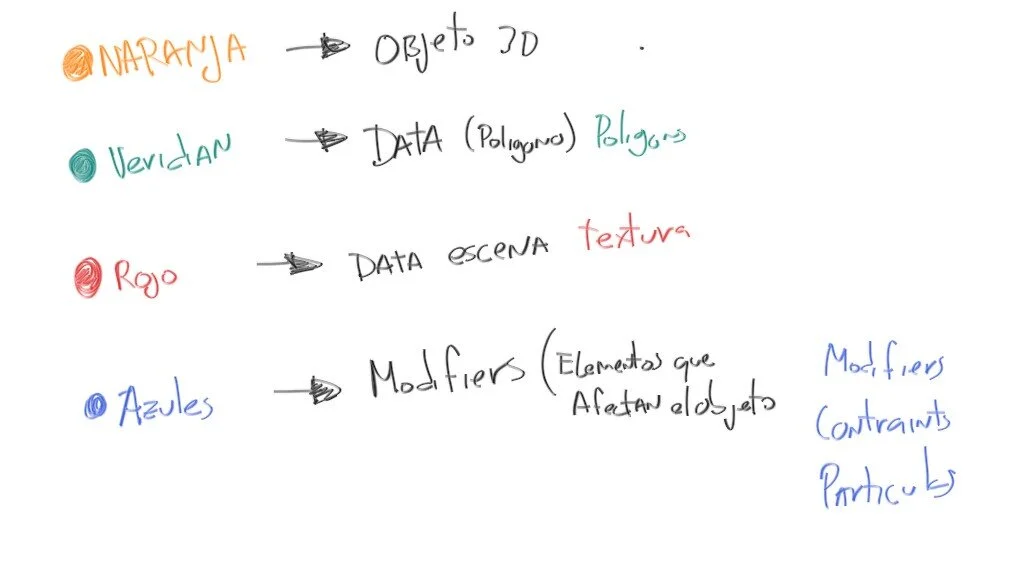 NARANJA → Objeto 3D
Veridian → DATA (Poligono) Poligons
Rojo → DATA escena textura
Azules → Modifiers (Elementos que
Afectan el objeto
Modifiers
Contraints
Particules